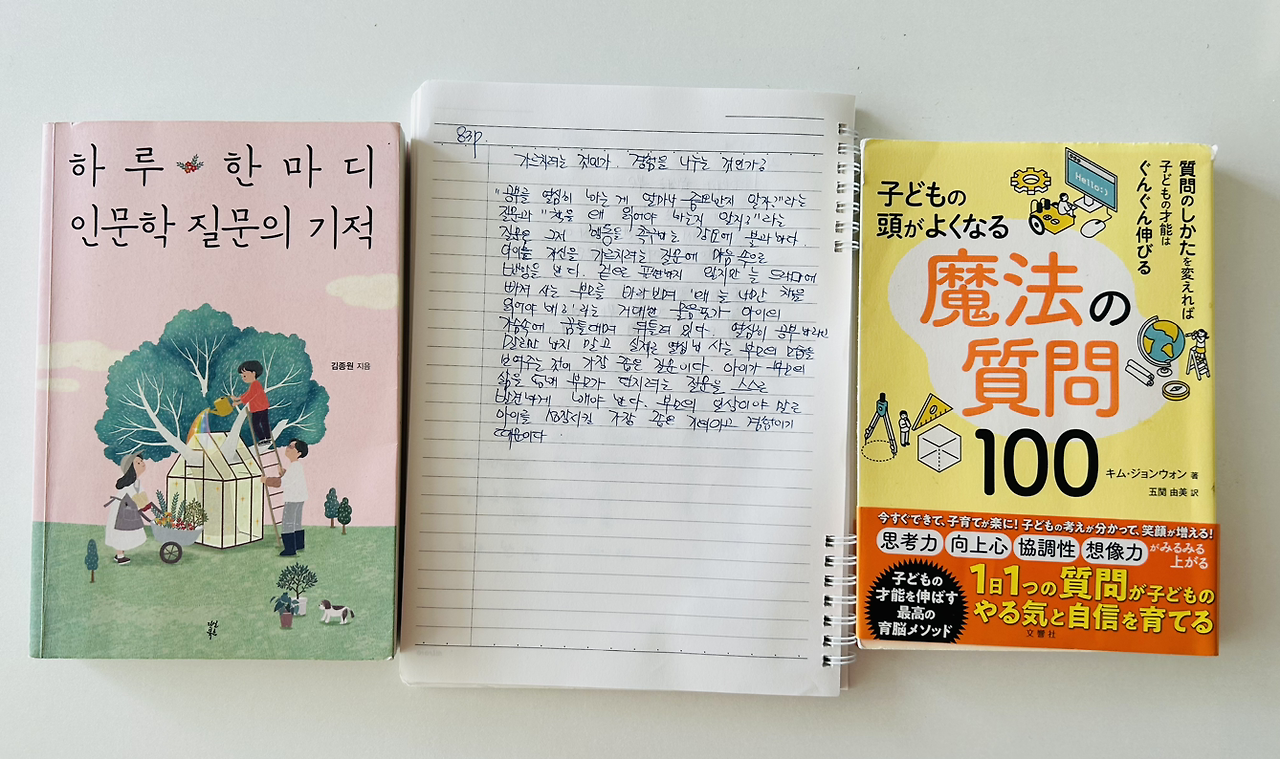 하루 한마디
인문학 질문의 기적
김종원 지음
다산
북스
83p.
가르치려는 것인가, 경험을 나누는 것인가?
"공부를 열심히 하는 게 얼마나 중요한지 알지?"라는
질문과 "책을 왜 읽어야 하는지 알지?"라는
질문은 그저 행동을 촉구하는 강요에 불과하다.
아이들은 자신을 가르치려는 질문에 마음 속으로
반항을 한다. 겉으로 표현하지 않지만 늘 드라마에
빠져 사는 부모를 바라보며 '왜 나만 책을
읽어야 하지?'라는 거대한 물음표가 아이의
가슴속에 꿈틀대며 뒤틀려 있다. 열심히 공부하라는
말만 하지 말고 실제로 열심히 사는 부모의 모습을
보여주는 것이 가장 좋은 질문이다. 아이가 부모의
삶을 통해 부모가 던지려는 질문을 스스로
발견하게 해야 한다. 부모의 일상이야말로
아이를 성장시킬 가장 값진 지식이고 경험이기
때문이다.
質問のしかたを変えれば
子どもの才能は
ぐんぐん伸びる
Hello:)
子どもの
頭がよくなる
魔法の
質問
100
キム・ジョンウォン 著
五関 由美 訳
今すぐできて、子育てが楽に!子どもの考えが分かって、笑顔が増える!
思考力 向上心 協調性 想像力 がみるみる
上がる
子どもの
才能を伸ばす
最高の
育脳メソッド
1日1つの質問が子どもの
やる気と自信を育てる
文響社